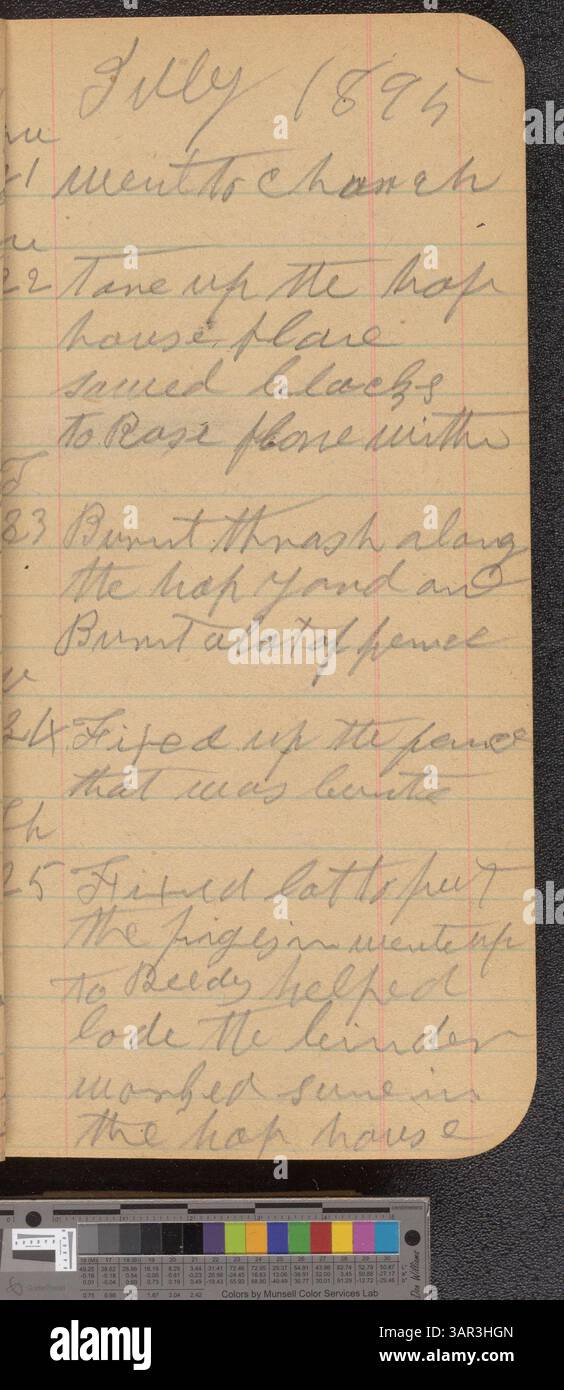 July 1895
21 went to church
22 Tore up the hop
house flore
sawed blocks
to Rase flore with
23 Burnt thrash along
the hop yard and
Burnt a lot of fence
24 Fixed up the fence
that was burnte
Th
25 Fixed lot to put
the pigs in went up
to Beedys helped
lode the binder
worked sume in
the hop house
Colors by Munsell Color Services Lab
Don Williams
alamy
3AR3HGN